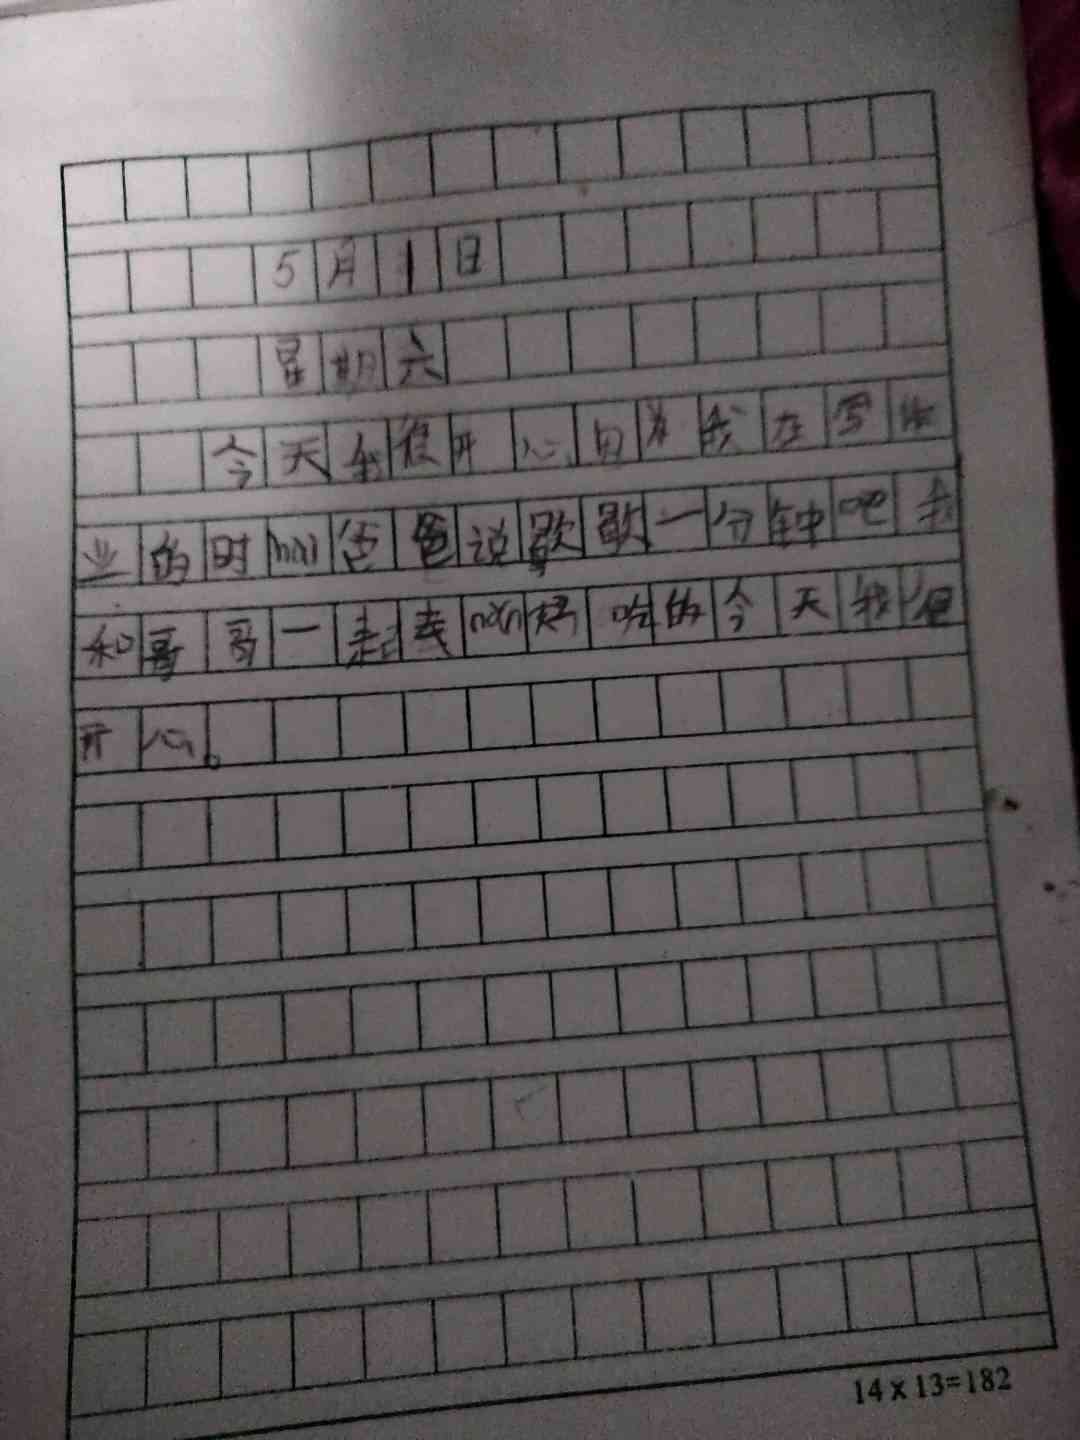 5月1日
星期六
今天我很开心因为我在写作
业的时hou爸爸说歇歇一分钟吧我
和哥哥一起去 好吃的今天我很
开心。
14 x 13=182